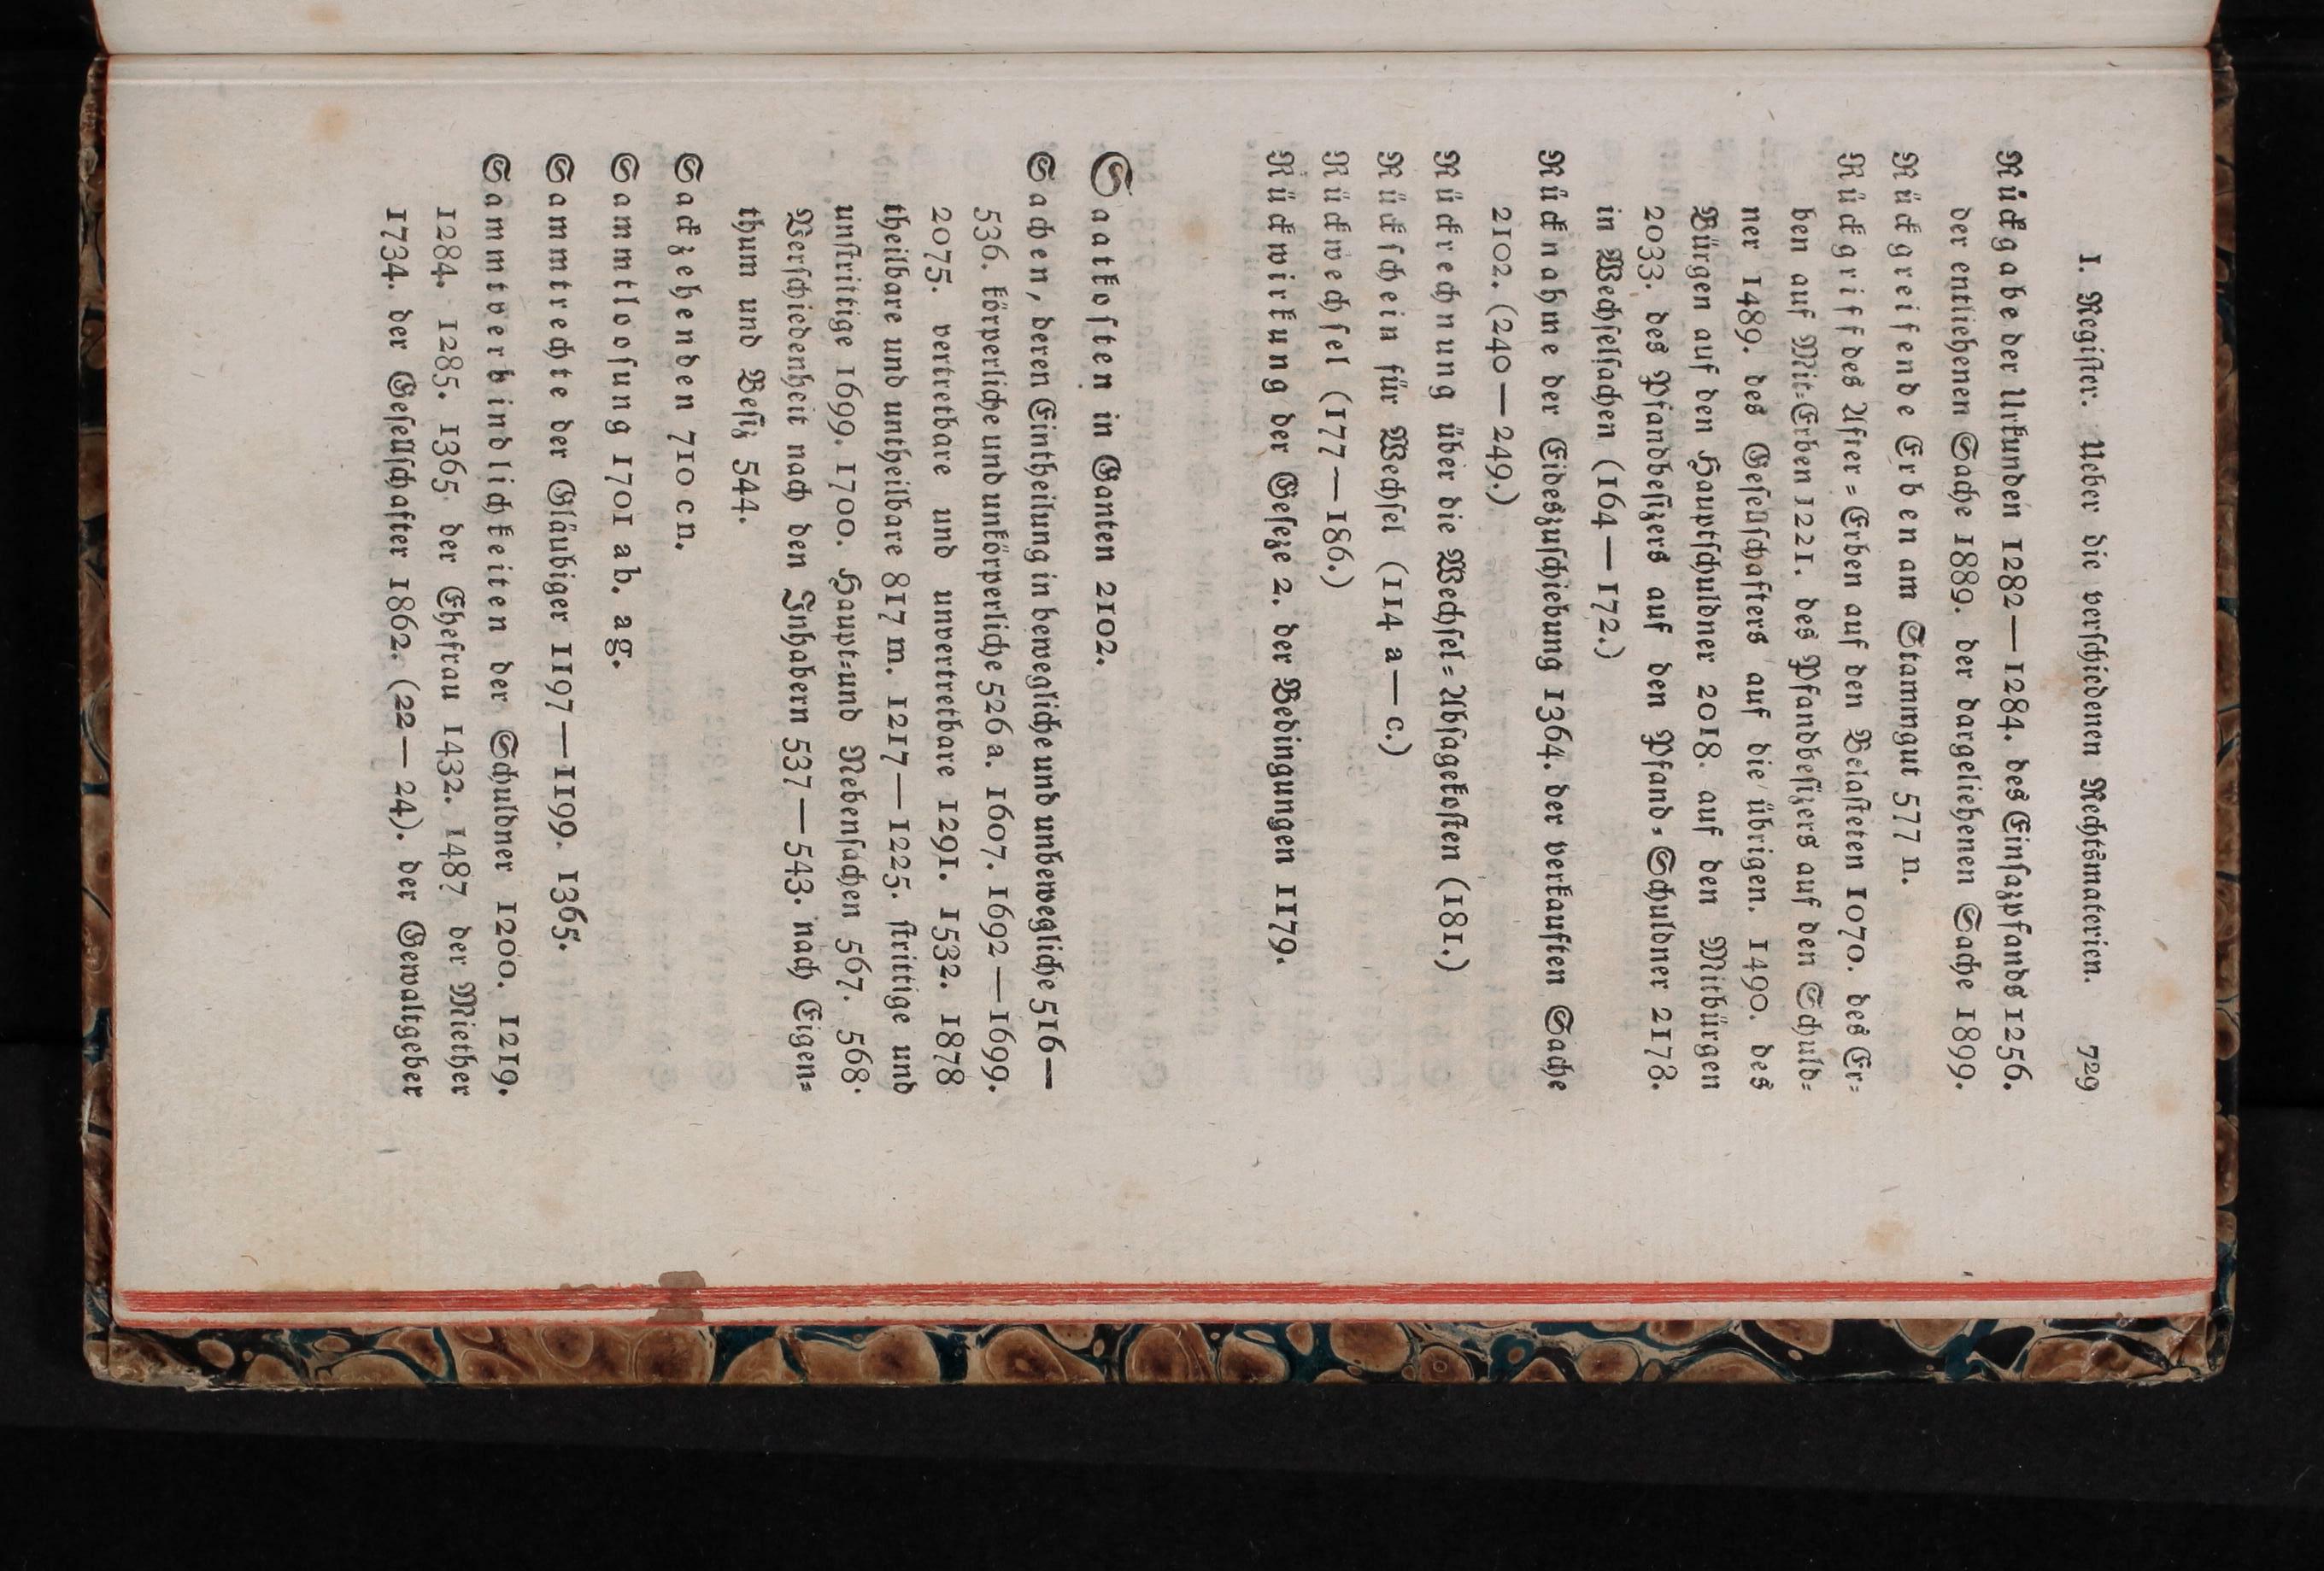 I. Regiſter. Ueber die verſchiedenen Rechtsmaterien. 729
Rückgabe der Urkunden 1282—1284. des Einſazpfands 1256.
der entliehenen Sache 1889. der dargeliehenen Sache 1899.
Rückgreifende Erben am Stammgut 577 n.
Rückgriff des After=Erben auf den Belaſteten 1070. des Er=
ben auf Mit=Erben 1221. des Pfandbeſizers auf den Schuld=
ner 1489. des Geſellſchafters auf die übrigen. 1490. des
Bürgen auf den Hauptſchuldner 2018. auf den Mitbürgen
2033. des Pfandbeſizers auf den Pfand=Schuldner 2178.
in Wechſelſachen (164—172.)
Rücknahme der Eideszuſchiebung 1364. der verkauften Sache
2102. (240—249.)
Rückrechnung über die Wechſel=Abſagekoſten (181.)
Rückſchein für Wechſel (114 a—c.)
Rückwechſel (177—186.)
Rückwirkung der Geſeze 2. der Bedingungen 1179.
Saatkoſten in Ganten 2102.
Sachen, deren Eintheilung in bewegliche und unbewegliche 516—
536. körperliche und unkörperliche 526 a. 1607. 1692—1699.
2075. vertretbare und unvertretbare 1291. 1532. 1878
theilbare und untheilbare 817 m. 1217—1225. ſtrittige und
unſtrittige 1699. 1700. Haupt=und Nebenſachen 567. 568.
Verſchiedenheit nach den Inhabern 537—543. nach Eigen=
thum und Beſiz 544.
Sackzehenden 710 c n.
Sammtloſung 1701 ab. ag.
Sammtrechte der Gläubiger 1197—1199. 1365.
Sammtverbindlichkeiten der Schuldner 1200. 1219.
1284. 1285. 1365 der Ehefrau 1432. 1487 der Miether
1734. der Geſellſchafter 1862. (22—24). der Gewaltgeber